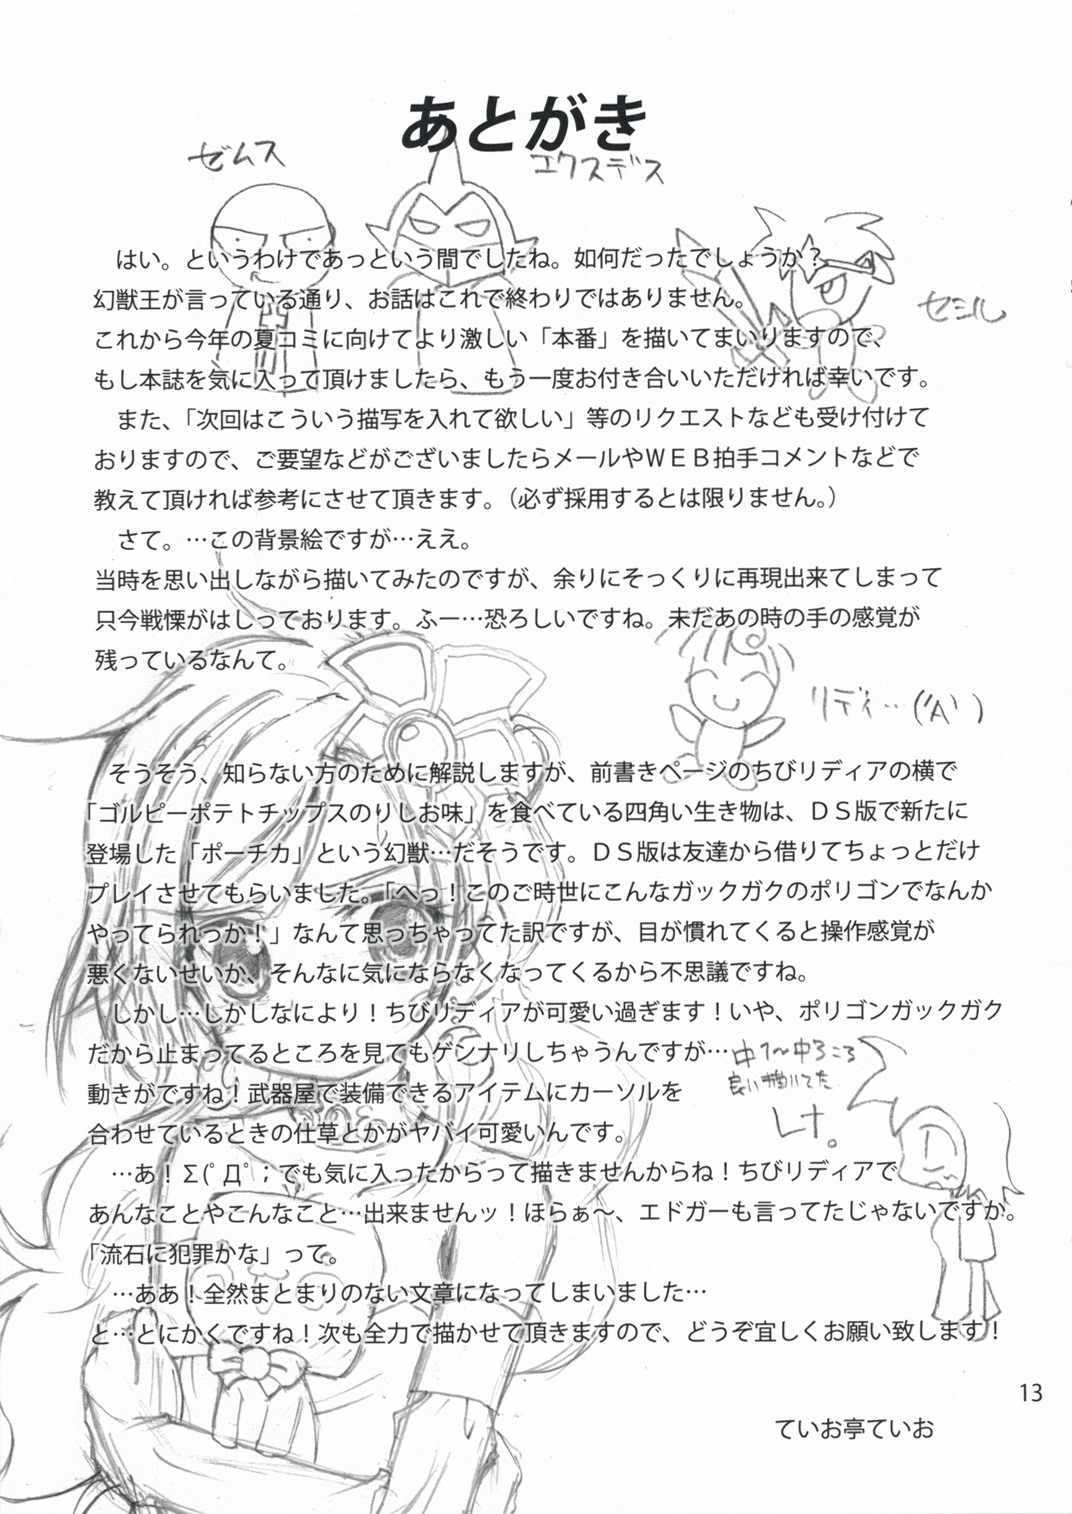 あとがき
ゼムス
エクスデス
はい。というわけであっという間でしたね。如何だったでしょうか?
幻獣王が言っている通り、お話はこれで終わりではありません。
セシル
これから今年の夏コミに向けてより激しい「本番」を描いてまいりますので、
もし本誌を気に入って頂けましたら、もう一度お付き合いいただければ幸いです。
また、「次回はこういう描写を入れて欲しい」等のリクエストなども受け付けて
おりますので、ご要望などがございましたらメールやWEB拍手コメントなどで
教えて頂ければ参考にさせて頂きます。(必ず採用するとは限りません。)
さて。…この背景絵ですが…ええ。
当時を思い出しながら描いてみたのですが、余りにそっくりに再現出来てしまって
只今戦慄がはしっております。ふー…恐ろしいですね。未だあの時の手の感覚が
残っているなんて。
リディ…('A`)
そうそう、知らない方のために解説しますが、前書きページのちびリディアの横で
「ゴルピーポテトチップスのりしお味」を食べている四角い生き物は、DS版で新たに
登場した「ポーチカ」という幻獣…だそうです。DS版は友達から借りてちょっとだけ
プレイさせてもらいました。「へっ!このご時世にこんなガックガクのポリゴンでなんか
やってられっか!」なんて思っちゃってた訳ですが、目が慣れてくると操作感覚が
悪くないせいか、そんなに気にならなくなってくるから不思議ですね。
しかし…しかしなにより!ちびリディアが可愛い過ぎます!いや、ポリゴンガックガク
だから止まってるところを見てもゲンナリしちゃうんですが…
動きがですね!武器屋で装備できるアイテムにカーソルを
合わせているときの仕草とかがヤバイ可愛いんです。
中1〜中3ころ
良い描いてた
レナ。
…あ!Σ(ﾟДﾟ;でも気に入ったからって描きませんからね!ちびリディアで
あんなことやこんなこと…出来ませんッ!ほらぁ〜、エドガーも言ってたじゃないですか。
「流石に犯罪かな」って。
…ああ!全然まとまりのない文章になってしまいました…
と…とにかくですね!次も全力で描かせて頂きますので、どうぞ宜しくお願い致します!
13
ていお亭ていお